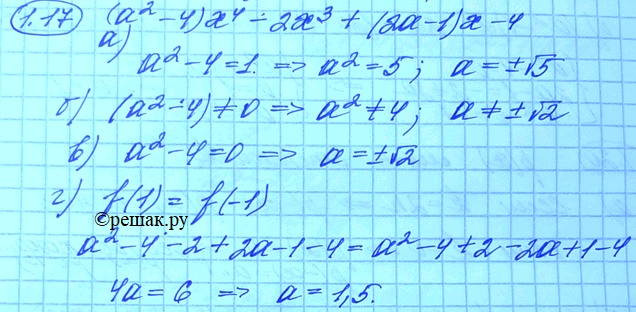 1.17) (a² - 4)x⁴ - 2x³ + (2a - 1)x - 4
а) a² - 4 = 1. => a² = 5; a = ±√5
б) (a² - 4) ≠ 0 => a² ≠ 4; a ≠ ±√2
в) a² - 4 = 0 => a = ±√2
г) f(1) = f(-1)
©решак.ру
a² - 4 - 2 + 2a - 1 - 4 = a² - 4 + 2 - 2a + 1 - 4
4a = 6 => a = 1,5.